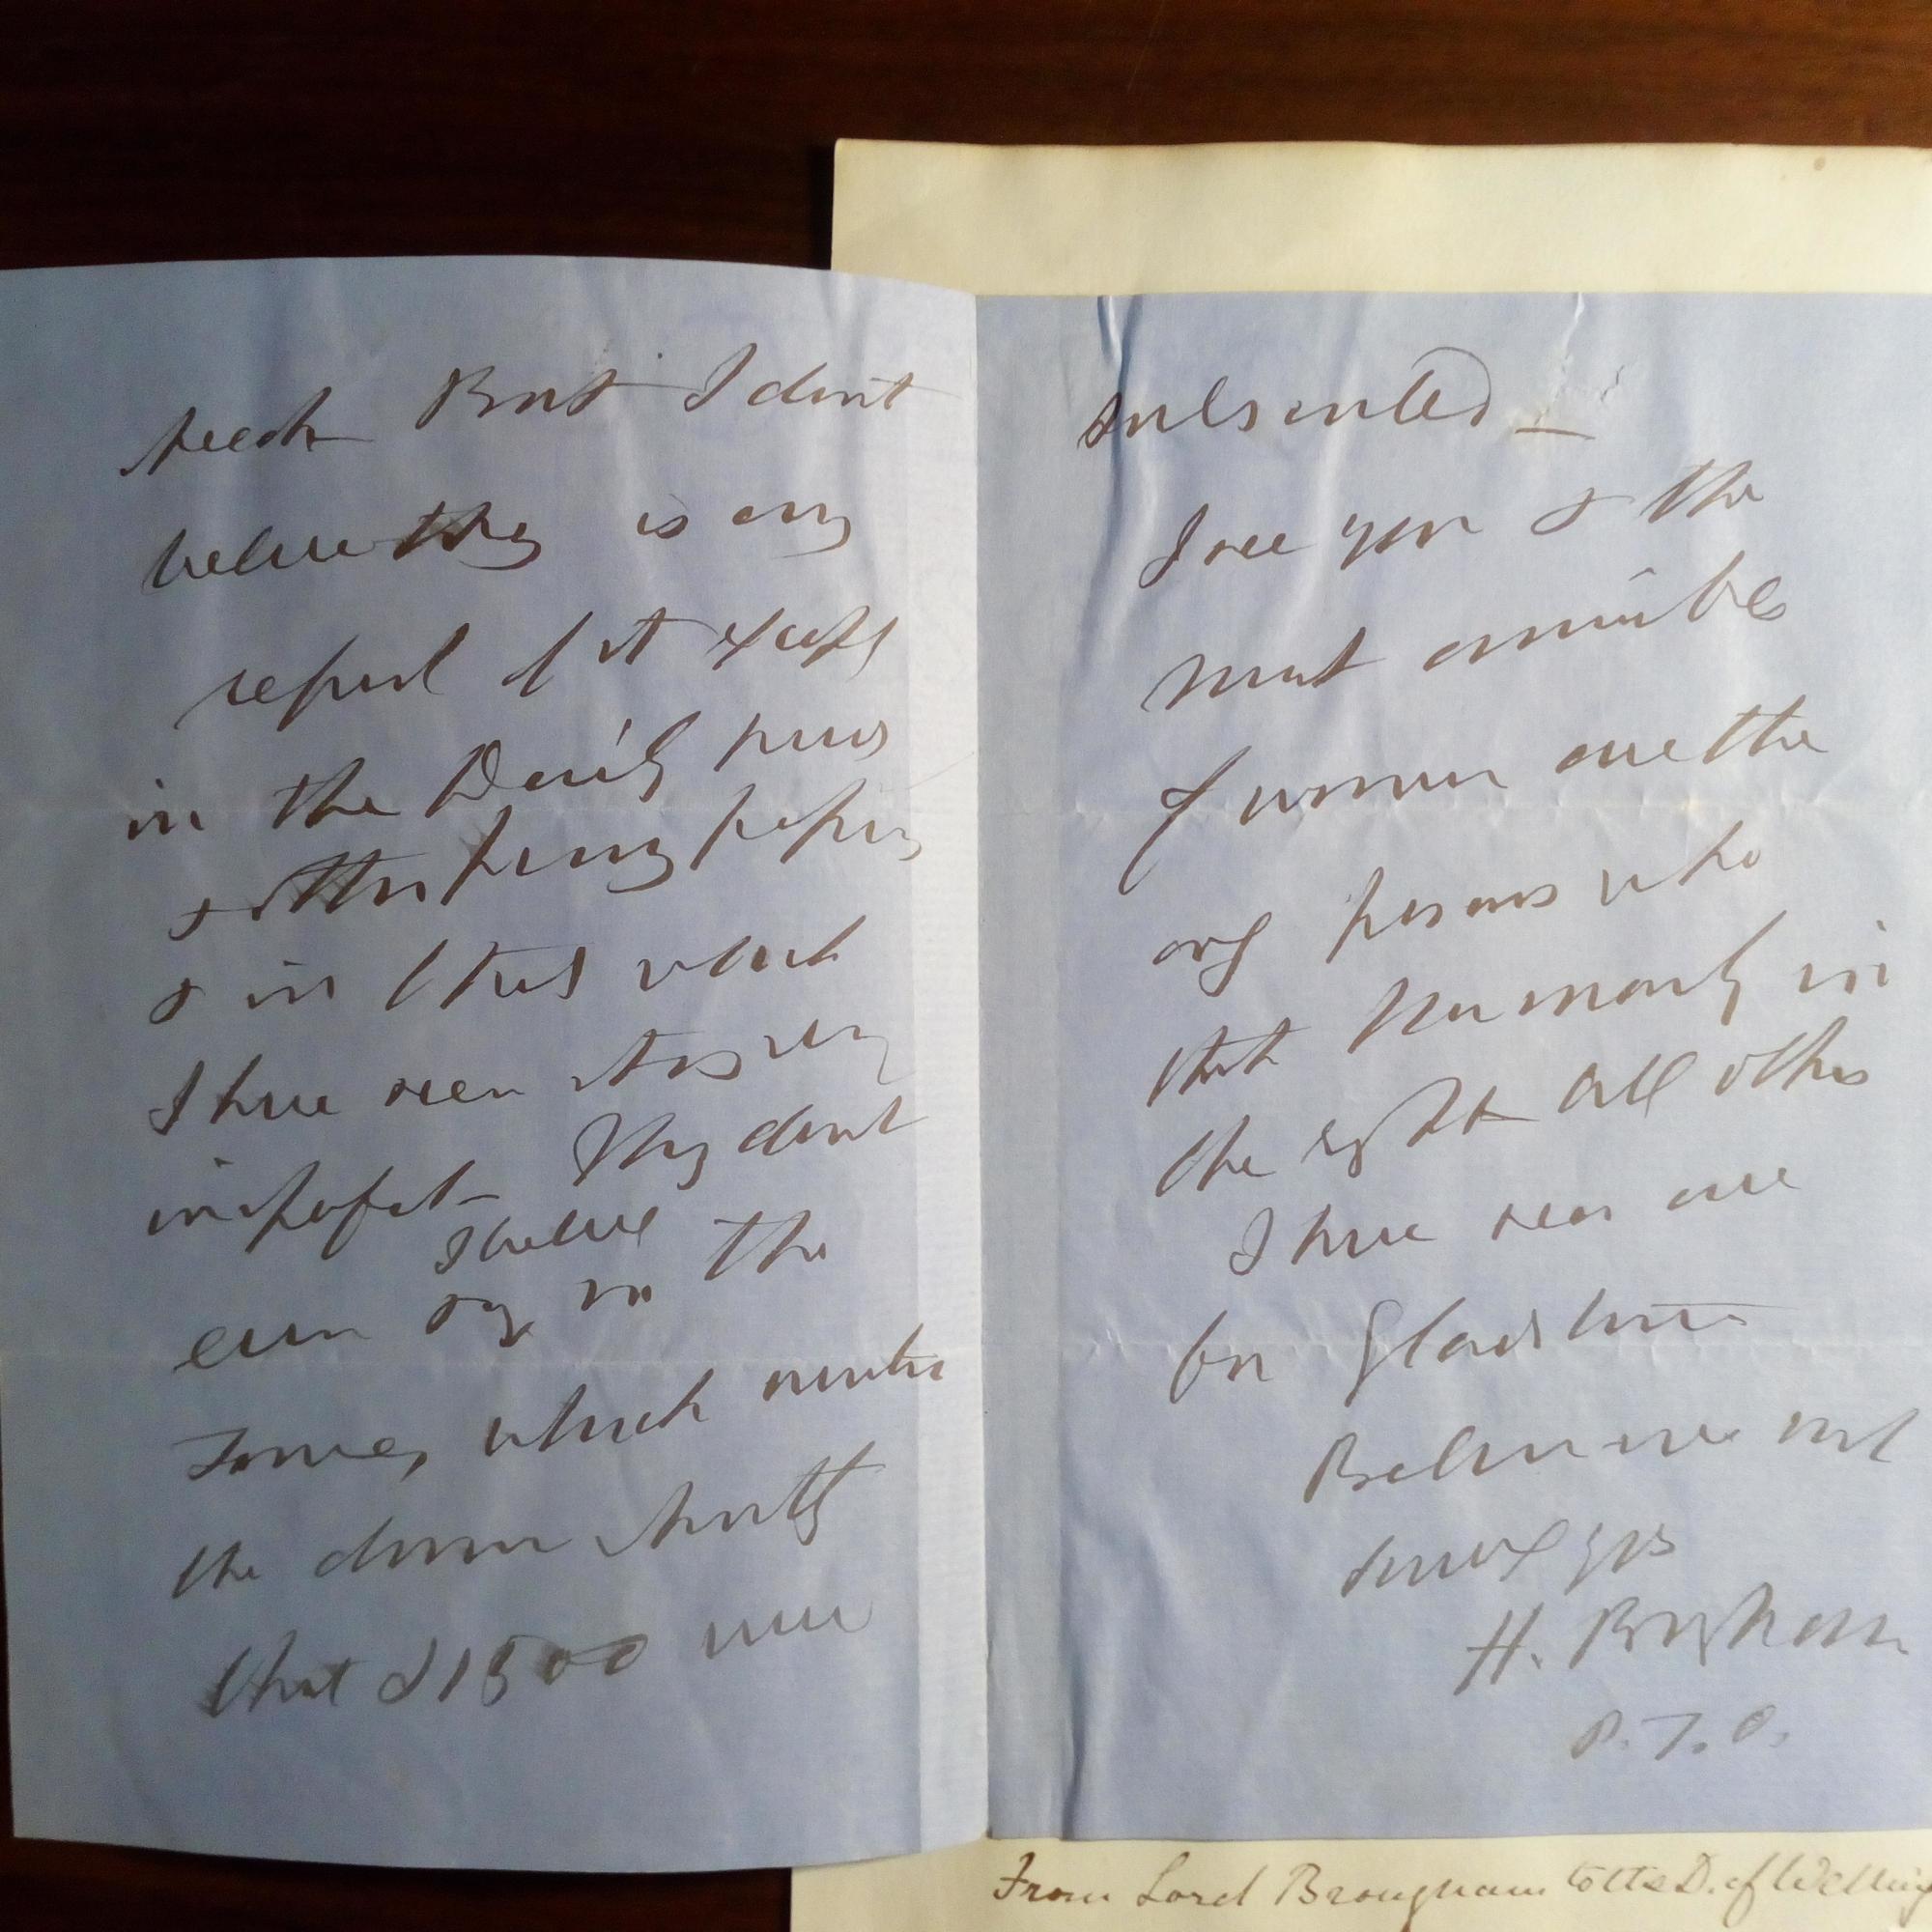 speech But I dont
believe there is any
report of it except
in the Daily press
& other penny papers
& in that which
I have seen it is very
imperfect They dont
I believe
even say in the
Times, which
the
that £1500 were
subscribed —
I see you & the
most amiable
of women are the
only persons who
that Normanby in
the right All others
I have seen are
for Gladstone
Believe me
yrs
H. Brougham
P.T.O.
From Lord Brougham to the D. of Welling